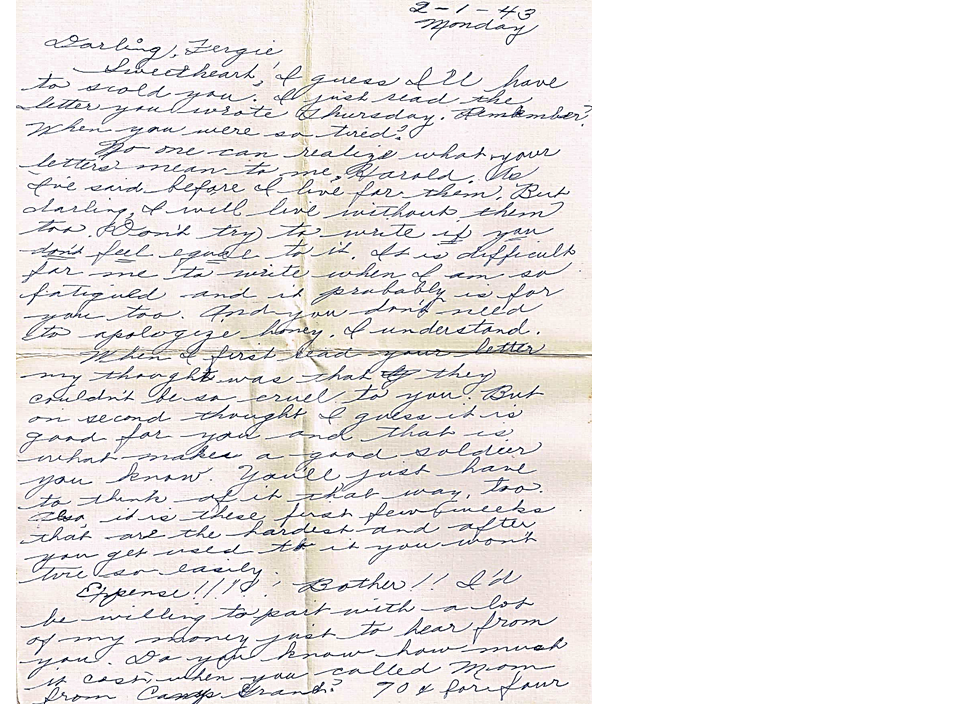 2-1-43
Monday
Darling, Fergie
Sweetheart, I guess I'll have
to scold you. I just read the
letter you wrote Thursday. Remember?
When you were so tired?
No one can realize what your
letters mean to me, Harold. As
I've said before I live for them. But
darling, I will live without them
too. Don't try to write if you
don't feel equal to it. It is difficult
for me to write when I am so
fatigued and it probably is for
you too. And you don't need
to apologize honey. I understand.
When I first read your letter
my thought was that they
couldn't be so cruel to you. But
on second thought I guess it is
good for you and that is
what makes a good soldier
you know. You'll just have
to think of it that way, too.
Also, it is these first few weeks
that are the hardest and after
you get used to it you won't
tire so easily.
Expense!!!!! Bother!! I'd
be willing to part with a lot
of my money just to hear from
you. Do you know how much
it cost, when you called Mom
from Camp Grant? 70¢ for four